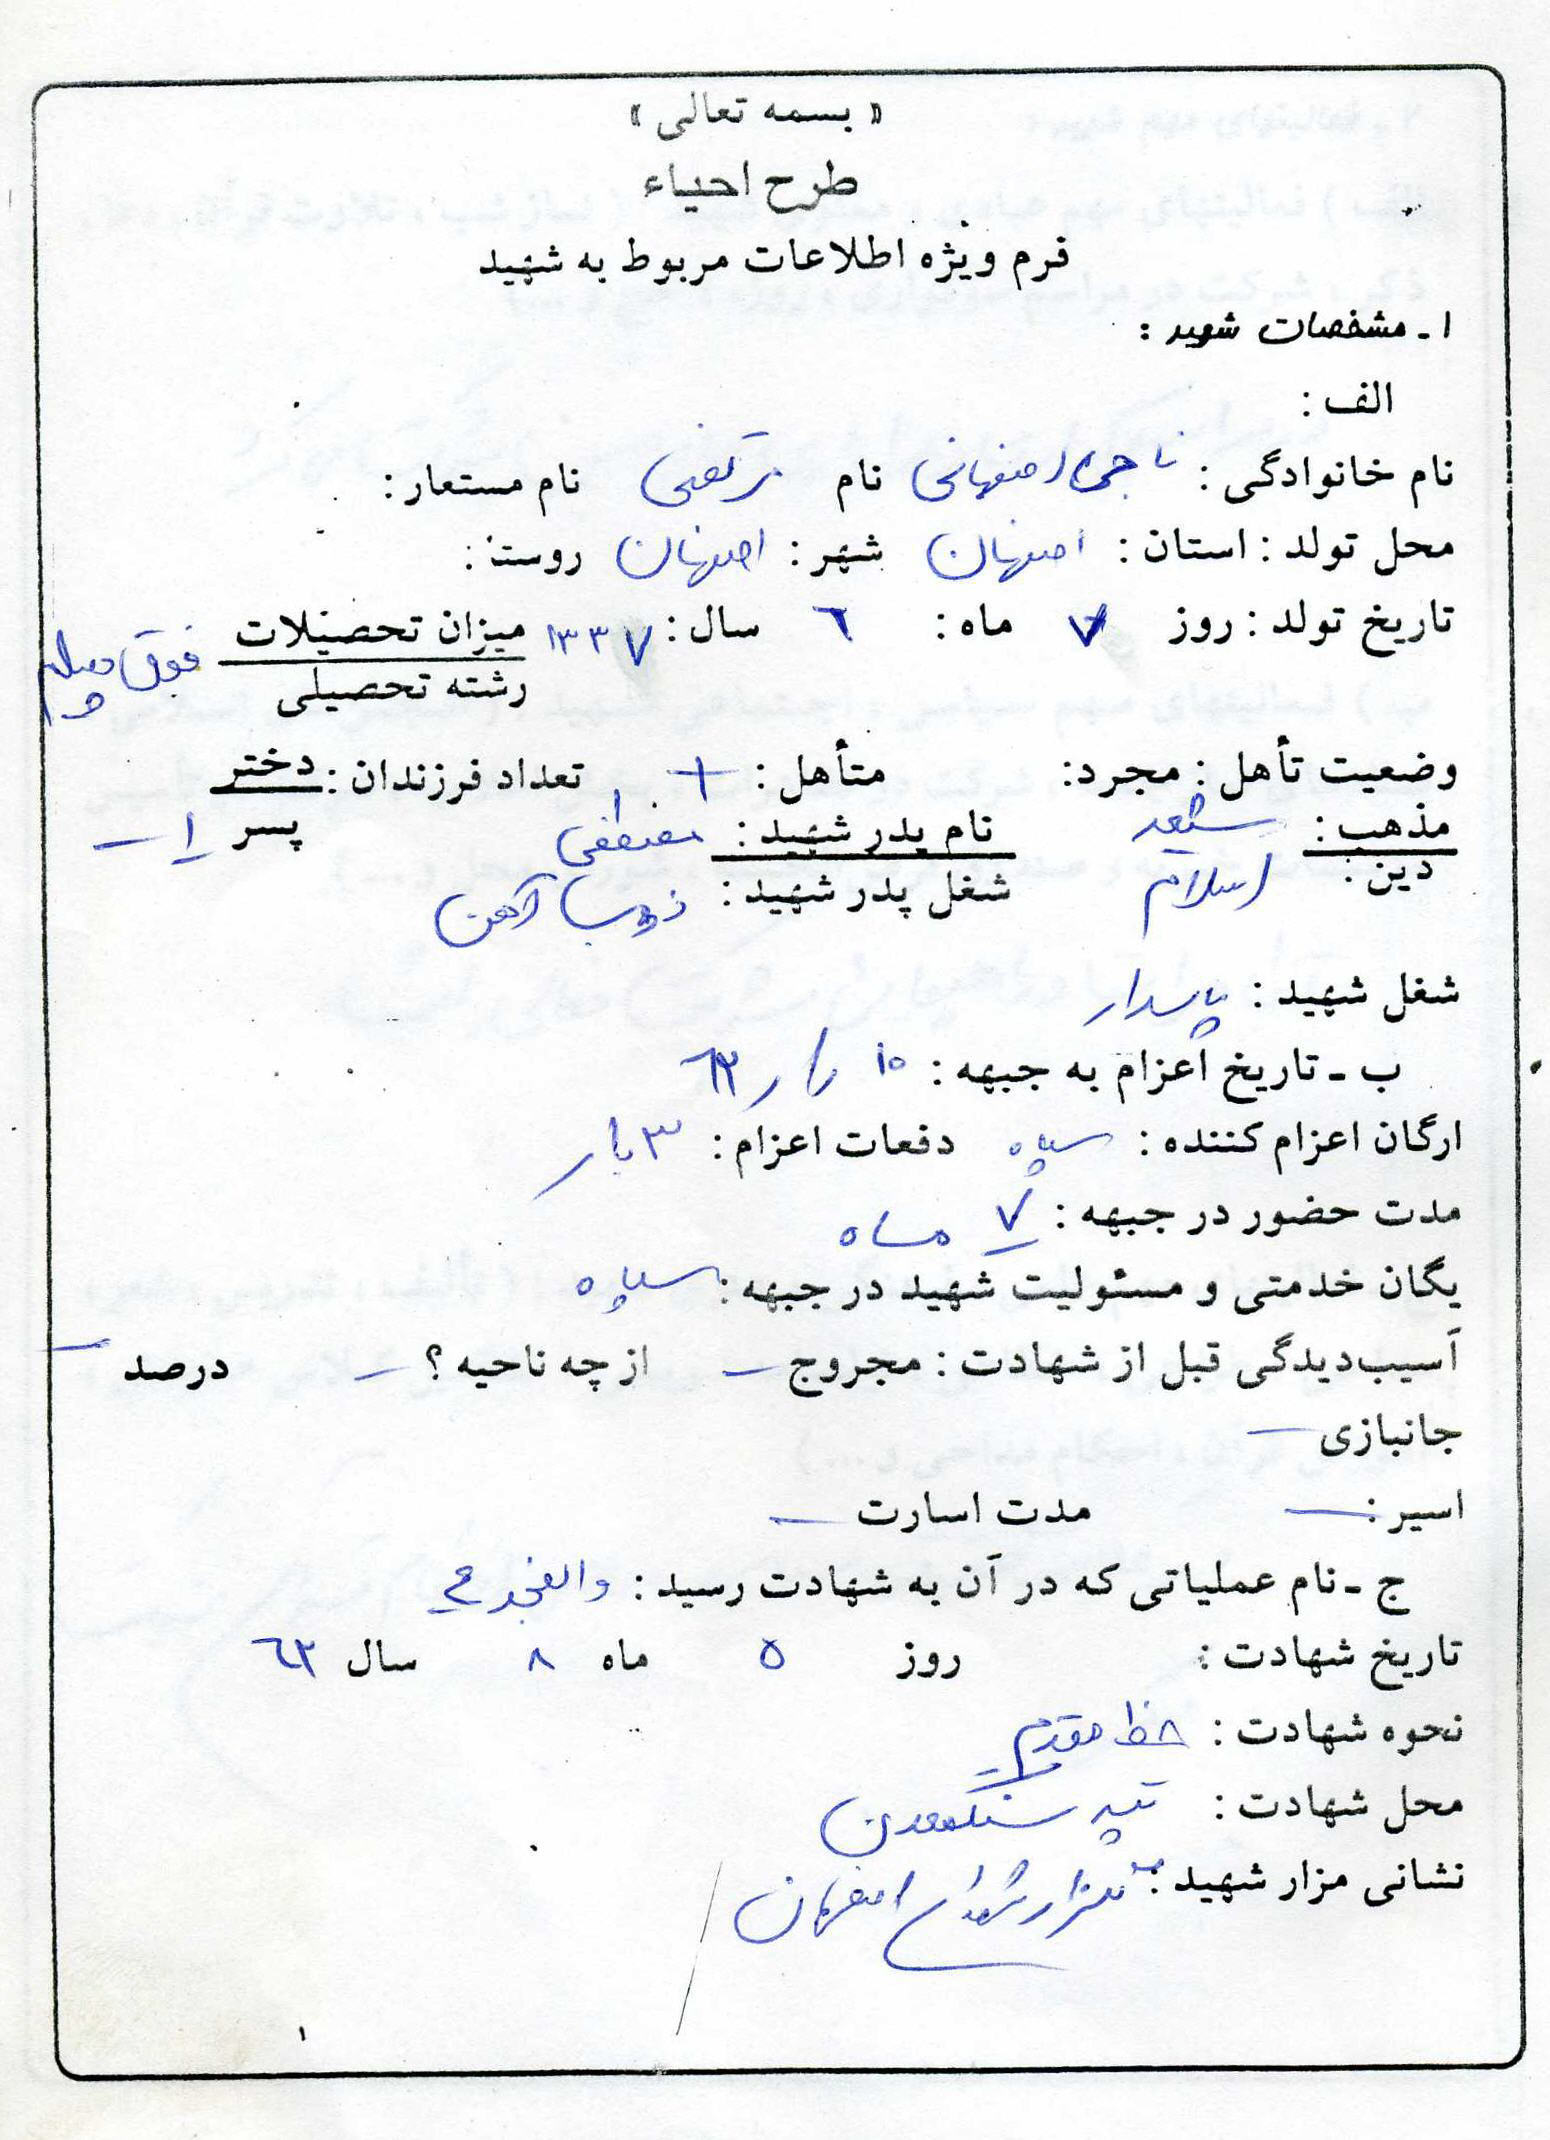 « بسمه تعالی »
طرح احیاء
فرم ویژه اطلاعات مربوط به شهید
۱ـ مشخصات شهید :
الف :
نام خانوادگی : ناجی اصفهانی نام مرتضی نام مستعار :
محل تولد : استان : اصفهان شهر : اصفهان روستا :
تاریخ تولد : روز ۷ ماه : ٦ سال : ۱۳۳۷ میزان تحصیلات فوق دیپلم
رشته تحصیلی
وضعیت تأهل : مجرد: متأهل : + تعداد فرزندان : دختر
مذهب : شیعه نام پدر شهید : مصطفی پسر ۱ ـ
دین : اسلام شغل پدر شهید : ذوب آهن
شغل شهید : پاسدار
ب ـ تاریخ اعزام به جبهه : ۱۰ / ٦۲
ارگان اعزام کننده : سپاه دفعات اعزام : ۳ بار
مدت حضور در جبهه : ۷ ماه
یگان خدمتی و مسئولیت شهید در جبهه : سپاه
آسیب‌دیدگی قبل از شهادت : مجروح ـ از چه ناحیه ؟ ـ درصد ـ
جانبازی ـ
اسیر : ـ مدت اسارت ـ
ج ـ نام عملیاتی که در آن به شهادت رسید : والفجر ۴
تاریخ شهادت : روز ۵ ماه ۸ سال ٦۲
نحوه شهادت : خط مقدم
محل شهادت : تپه سنگ معدن
نشانی مزار شهید : گلزار شهدای اصفهان
۱